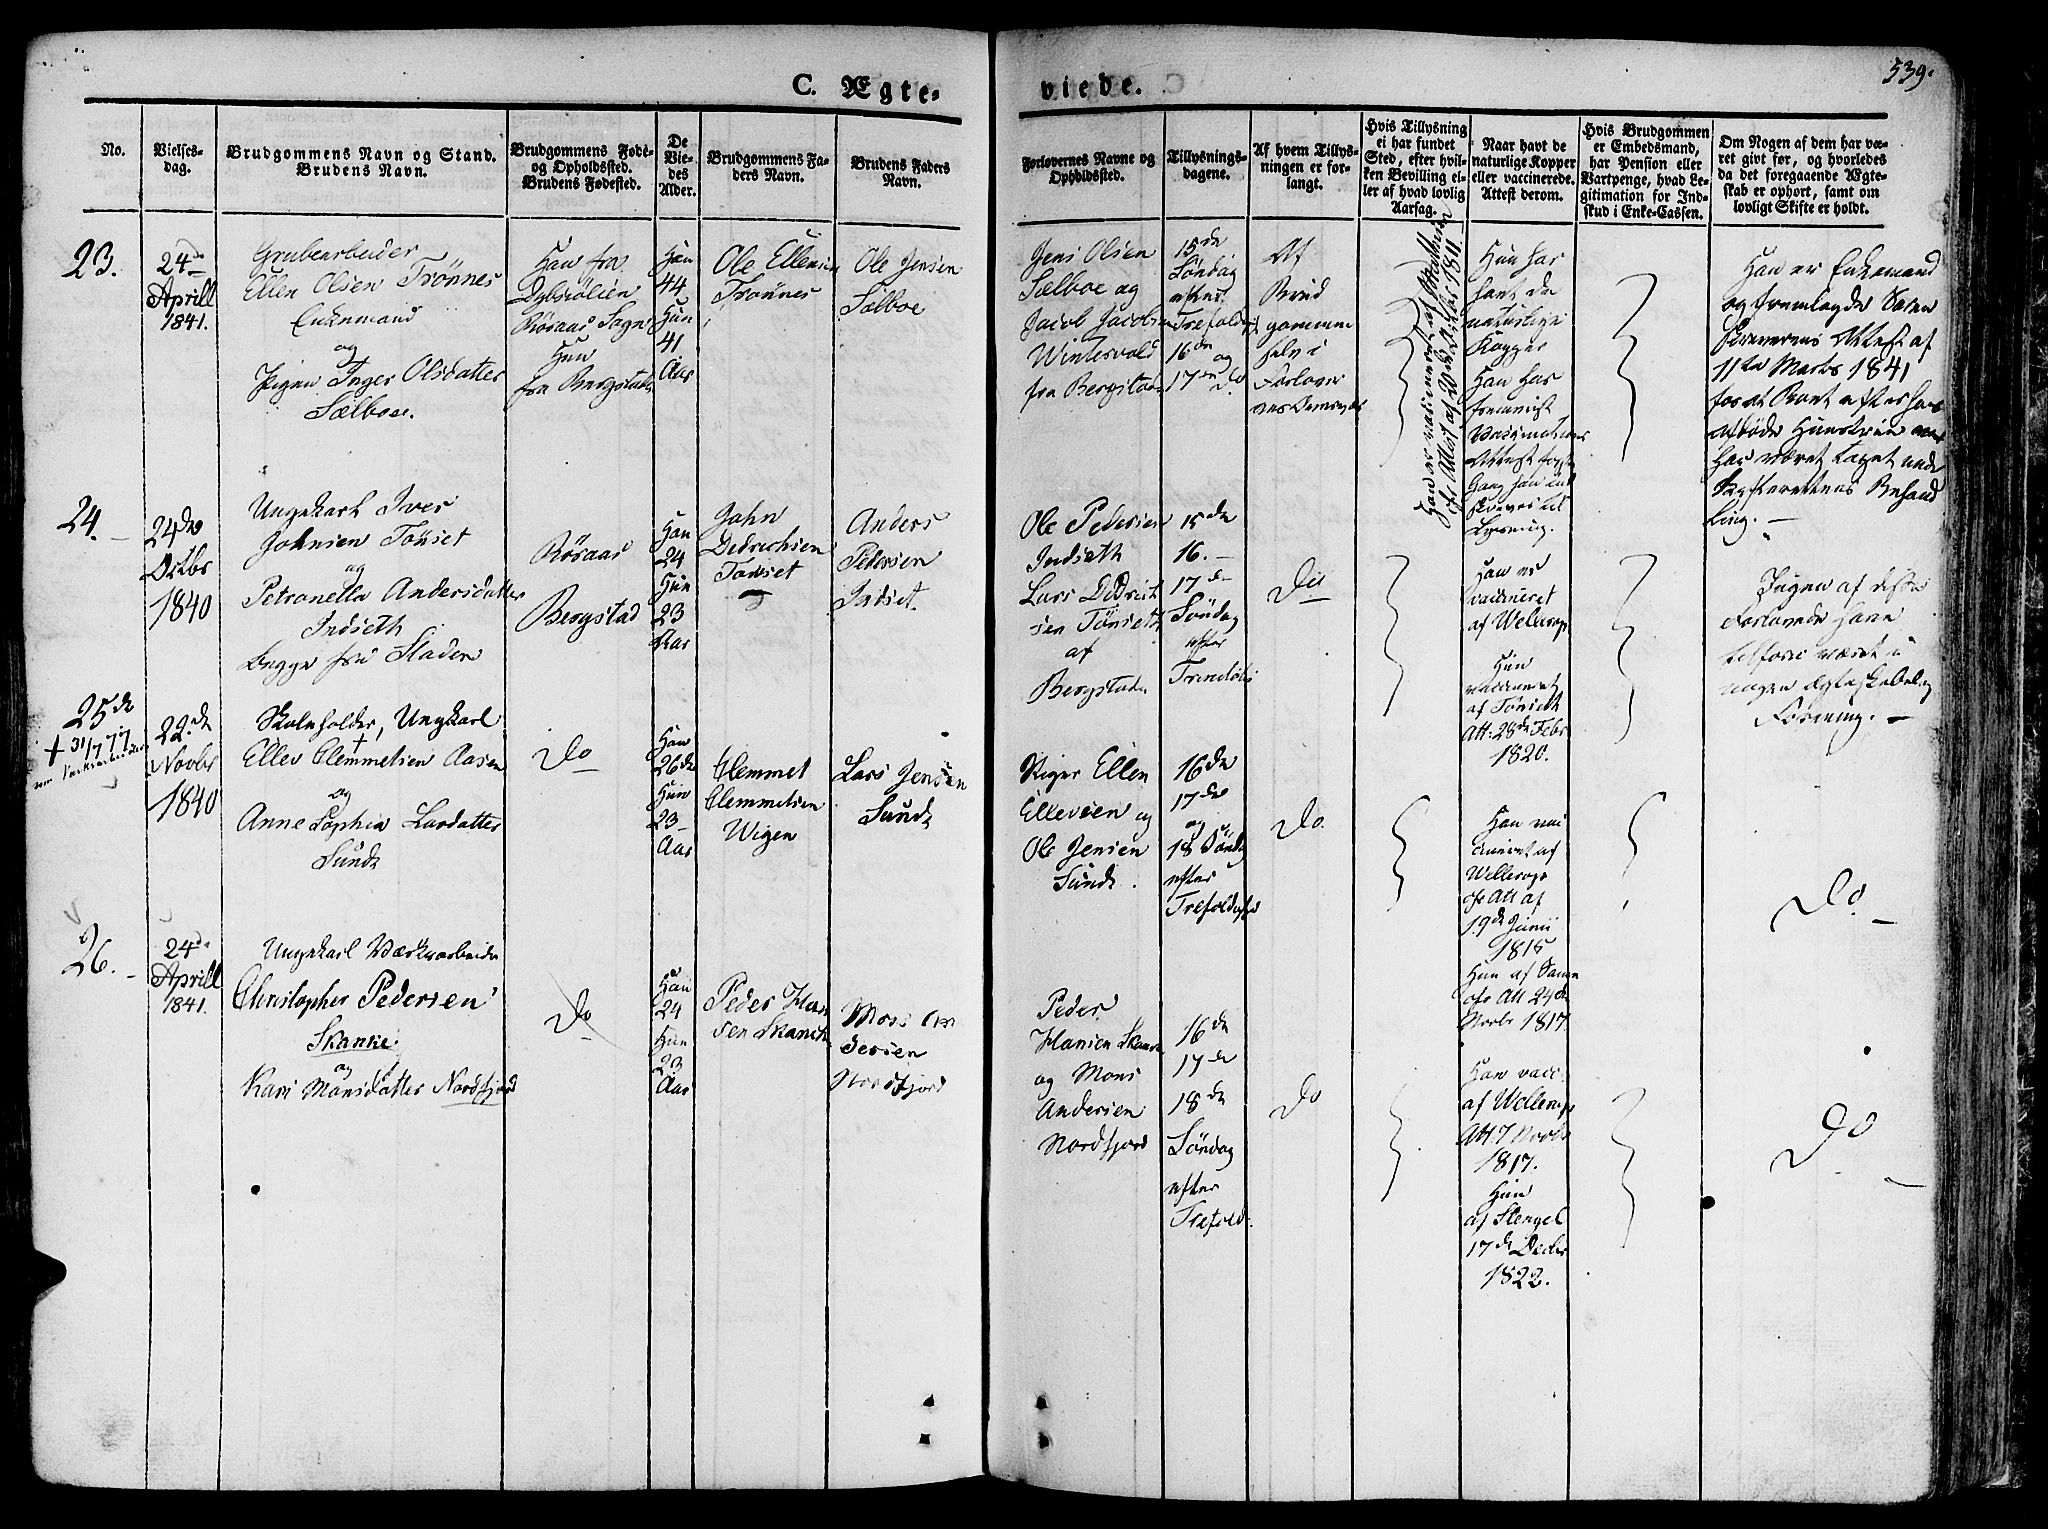 C. Ægte-
viede.
539.
No.
Vielses-
dag.
Brudgommens Navn og Stand.
Brudens Navn.
Brudgommens Føde-
og Opholdssted.
Brudens Fødested.
De
Vie-
des
Alder.
Brudgommens Fa-
ders Navn.
Brudens Faders
Navn.
Forlovernes Navne og
Opholdssted.
Tillysnings-
dagene.
Af hvem Tillys-
ningen er for-
langt.
Hvis Tillysning
ei har fundet
Sted, efter hvil-
ken Bevilling el-
ler af hvad lovlig
Aarsag.
Naar havt de
naturlige Kopper
eller vaccinerede.
Attest derom.
Hvis Brudgommen
er Embedsmand,
har Pension eller
Vartpenge, hvad Le-
gitimation for Ind-
skud i Enke-Cassen.
Om Nogen af dem har væ-
ret givt før, og hvorledes
da det foregaaende Ægte-
skab er ophørt, samt om
lovligt Skifte er holdt.
23.
24de
Aprill
1841.
Grubearbeider
Ellen Olsen Trönnes
Enkemand
og
Pigen Inger Olsdatter
Sælboe.
Han fra
Röraas Sogn
Hun
fra Bergstaden
Han
44
Hun
41
Aar
Ole Ellensen
Tronnes
Ole Jensen
Sælboe
Jens Olsen
Sælboe og
Jacob Jacobsen
Wintervold
fra Bergstaden
15de
Söndag
efter
Trefoldigh
16de og
17de do
Af
Brud
gommen
selv i
Forlover
Hun har
havt de
naturlige
Kopper
Han har
fremvist
Vaccinations
Attest
Han er Enkemand
og fremlagde Soren
skriverens Attest af
11te Marts 1841
for at Boet efter hans
afdöde Hustrue
har været taget under
Skifterettens Behand
ling. -
24. -
24de
Octbr
1840
Ungekarl Iver
Johnsen Tönset
og
Petronella Andersdatter
Indseth
begge fra Staden
Röraas
Bergstad
Han
24
Hun
23
Aar
John
Dedrichsen
Tönset
Anders
Pedersen
Indset.
Ole Pedersen
Indseth
Lars Dedrich
sen Tönseth
af
Bergstaden
15de
16. -
17de
Söndag
efter
Do
Han er
vaccineret
af Wellerop
Hun
vaccineret
af Tönseth
Att: 28de Febr
1820.
Ingen af disse
Forlovede have
tilforn været i
nogen Ægteskabelig
Forening. -
25de
+ 31/7 77
22de
Novbr
1840
Skoleholder, Ungkarl
Ellev Clemmetsen Aasen
og
Anne Sophia Larsdatter
Sundt
Do
Han
26de
Hun
23
Aar
Clemmet
Clemmetsen
Wigen
Lars Jensen
Sundt
Ellen
Ellevsen og
Ole Jensen
Sundt.
16de
17de
og
18 Sönd
efter
Trefoldighd
Do.
Han vac
cineret af
Wellerop
ifr Att af
19de Junii
1815
Hun af Samme
ifr Att 24de
Novbr 1817
Do. -
26. -
24de
Aprill
1841.
Ungekarl Værksarbeider
Christopher Pedersen
Skanke
og
Kari Monsdatter Nordfjord
Do
Han
24
Hun
23
Aar
Peder Han
sen Skanch
Mons An
dersen
Nordfjord
Peder
Hansen Skanch
og Mons
Andersen
Nordfjord
16de
17de
18de
Söndag
efter
Trefold:
Do
Han vacc.
af Wellerop
Att 7 Novbr
1817.
Hun
af Stengel
17de Decbr
1822.
Do. -